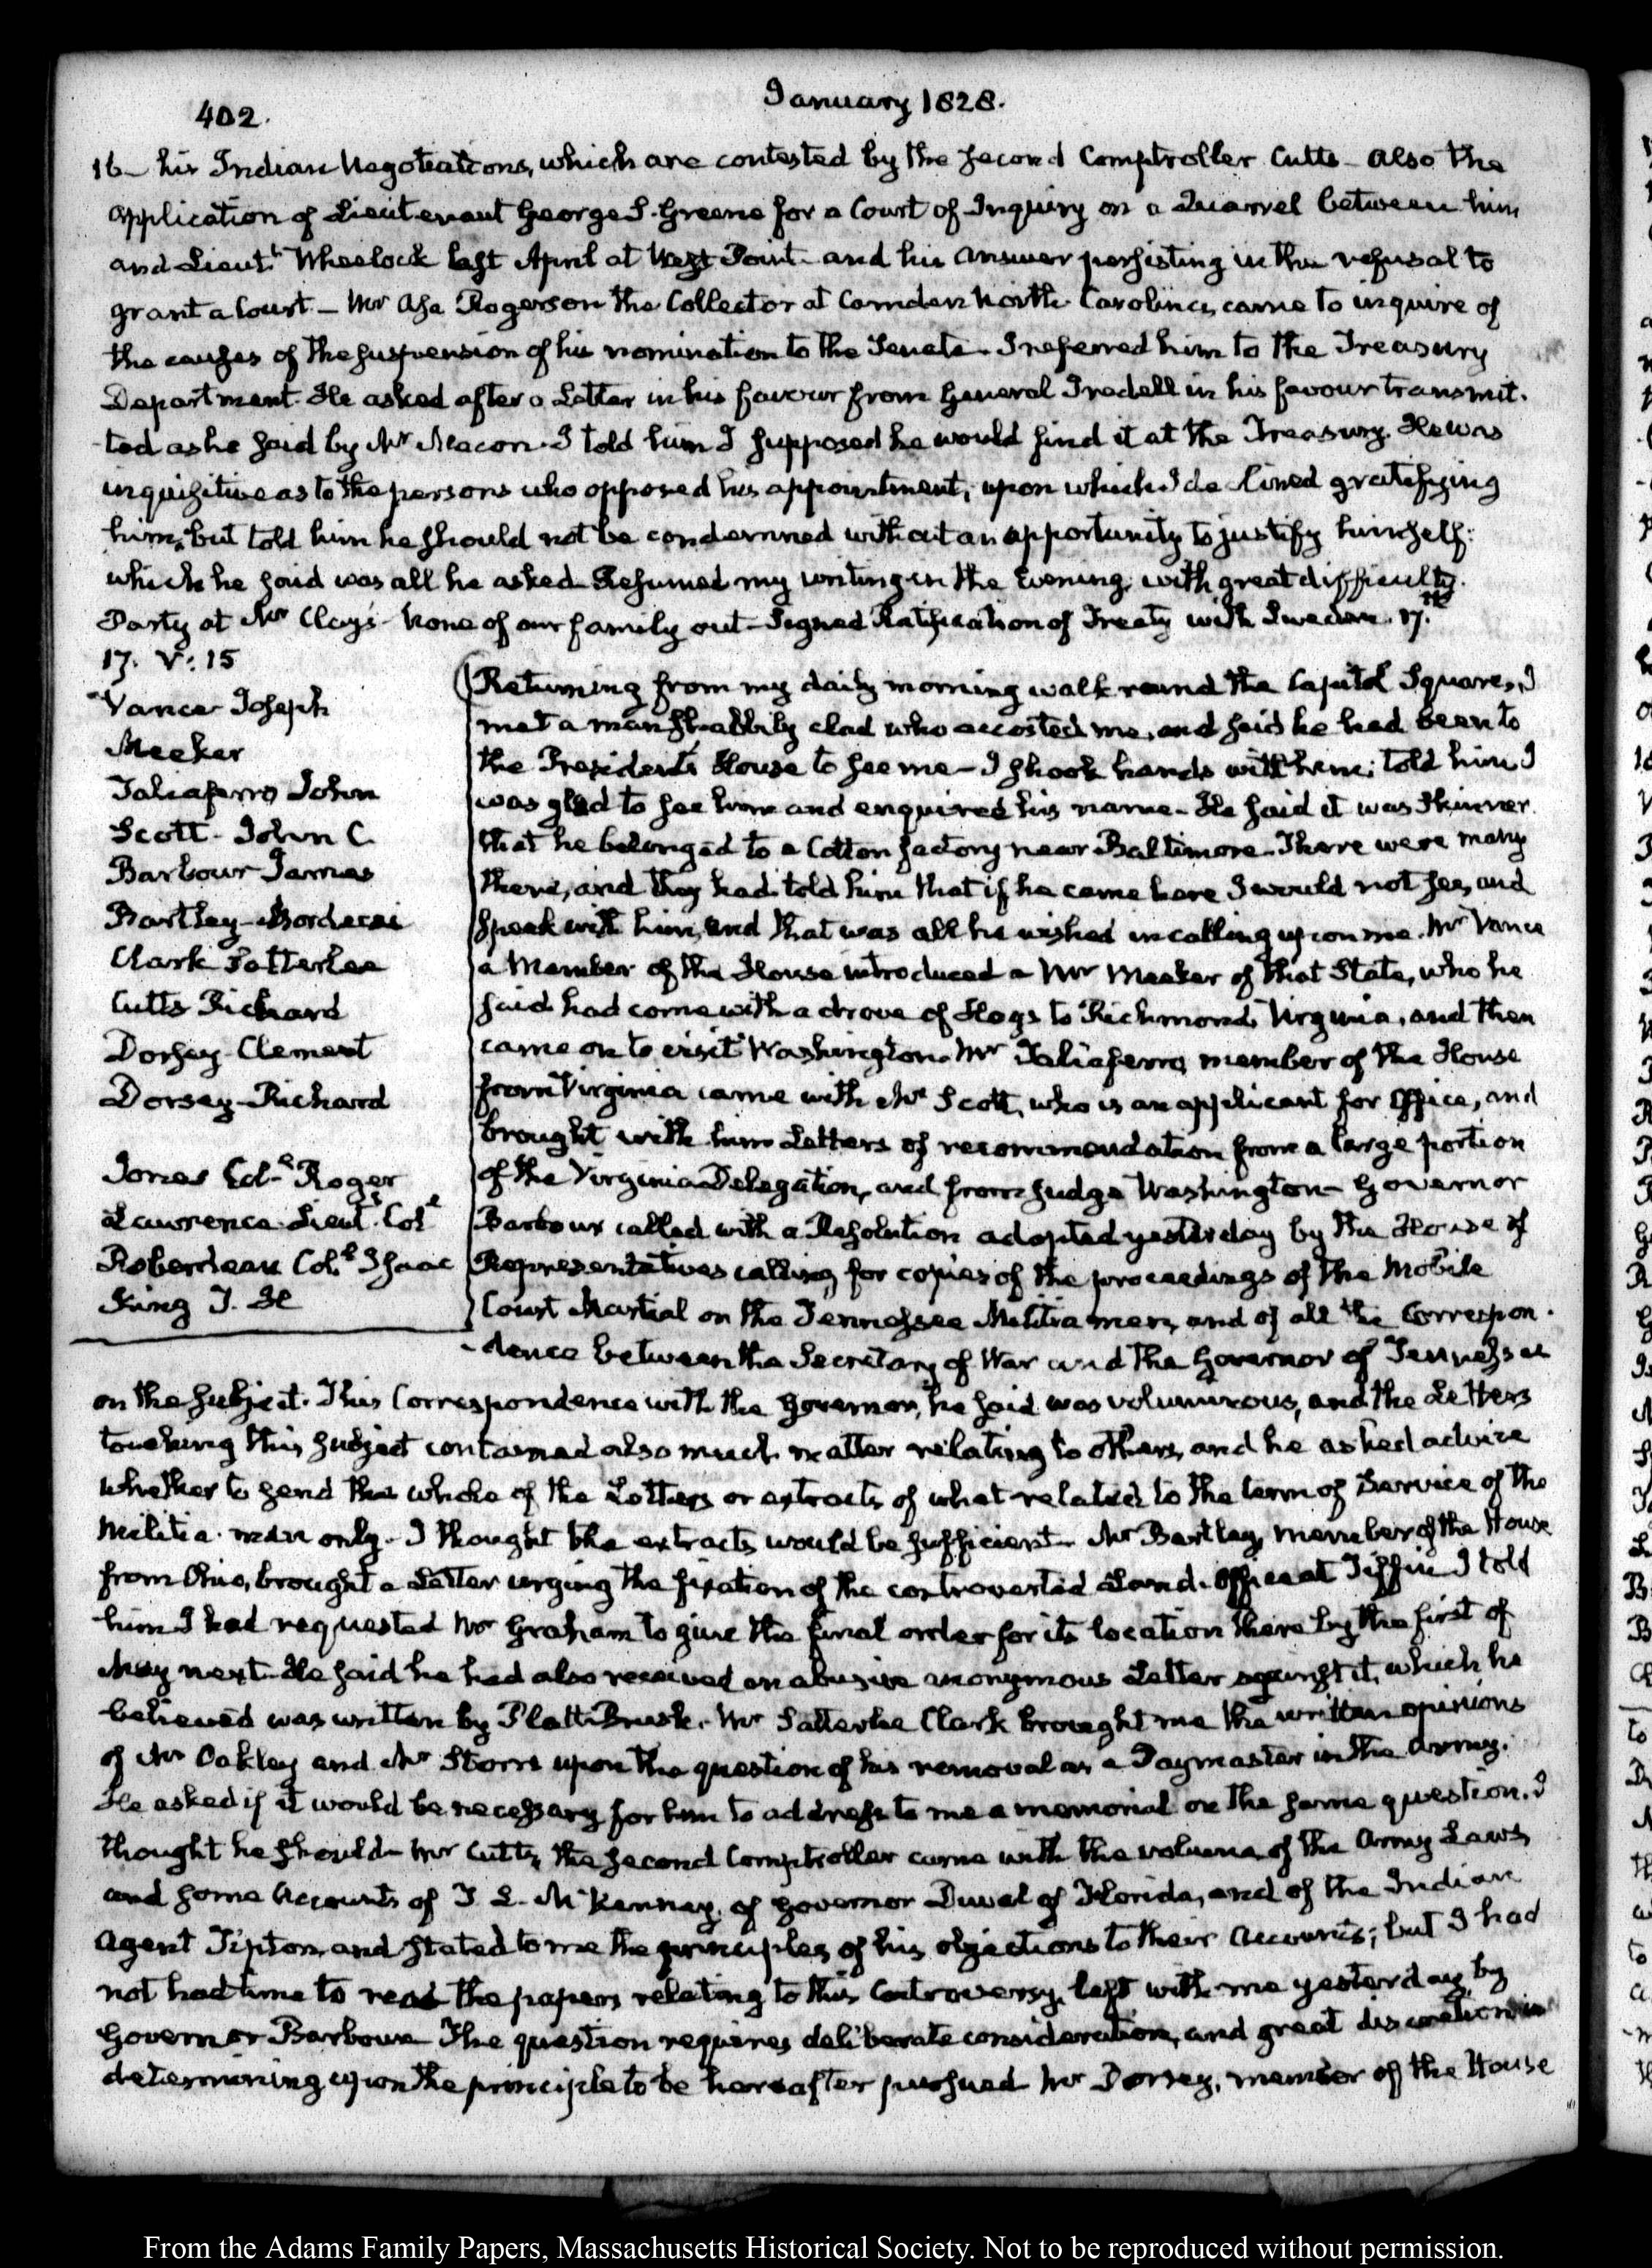 402.
January 1828.
16— his Indian Negotiations, which are contested by the second Comptroller Cutts— Also the
application of Lieutenant George S. Greene for a Court of Inquiry on a Quarrel between him
and Lieutt. Wheelock last April at West Point— and his answer persisting in the refusal to
grant a Court— Mr Asa Rogerson the Collector at Camden North Carolina, came to inquire of
the causes of the suspension of his nomination to the Senate. I referred him to the Treasury
Department. He asked after a Letter in his favour from General Iredell in his favour transmit-
-ted as he said by Mr Macon. I told him I supposed he would find it at the Treasury. He was
inquisitive as to the persons who opposed his appointment, upon which I declined gratifying
him, but told him he should not be condemned without an opportunity to justify himself:
which he said was all he asked. Resumed my writing in the Evening, with great difficulty.
Party at Mr Clay's— None of our family out— Signed Ratification of Treaty with Sweden. 17.th
17. V: 15
Vance Joseph
Meeker
Taliaferro John
Scott— John C.
Barbour James
Bartley—Mordecai
Clark Satterlee
Cutts Richard
Dorsey—Clement
Dorsey—Richard
Jones Coll. Roger
Lawrence Lieutt. Coll
Roberdeau Coll. Isaac
King J. H
Returning from my daily morning walk round the Capitol Square, I
met a man shabbily clad who accosted me, and said he had been to
the President's House to see me— I shook hands with him; told him I
was glad to see him and enquired his name— He said it was Skinner.
that he belonged to a Cotton factory near Baltimore. There were many
there, and they had told him that if he came here I would not see, and
speak with him, and that was all he wished in calling upon me. Mr Vance
a Member of the House introduced a Mr Meeker of that State, who he
said had come with a drove of Hogs to Richmond, Virginia, and then
came on to visit Washington. Mr Taliaferro, member of the House
from Virginia came with Mr Scott, who is an applicant for Office, and
brought with him Letters of recommendation from a large portion
of the Virginia Delegation, and from Judge Washington— Governor
Barbour called with a Resolution adopted yesterday by the House of
Representatives calling for copies of the proceedings of the Mobile
Court Martial on the Tennessee Militia men, and of all the Correspon-
-dence between the Secretary of War and the Governor of Tennessee
on the subject. This Correspondence with the Governor, he said was voluminous, and the Letters
touching this subject contained also much matter relating to others, and he asked advice
whether to send the whole of the Letters or extracts of what related to the term of Service of the
Militia men only. I thought the extracts would be sufficient— Mr Bartley, member of the House
from Ohio, brought a Letter urging the fixation of the controverted Land Office at Tiffin— I told
him I had requested Mr Graham to give the final order for its location there by the first of
May next. He said he had also received an abusive anonymous Letter against it, which he
believed was written by Platt Brush. Mr Satterlee Clark brought me the written opinions
of Mr Oakley and Mr Storrs upon the question of his removal as a Paymaster in the Army.
He asked if it would be necessary for him to address to me a memorial on the same question. I
thought he should— Mr Cutts, the second Comptroller came with the volume of the Army Laws,
and some Accounts of T. L. McKenney, of Governor Duval of Florida, and of the Indian
Agent Tipton, and stated to me the principles of his objections to their Accounts; but I had
not had time to read the papers relating to this Controversy, left with me yesterday by
Governor Barbour. The question requires deliberate consideration, and great discretion in
determining upon the principle to be hereafter pursued. Mr Dorsey, member of the House
From the Adams Family Papers, Massachusetts Historical Society. Not to be reproduced without permission.